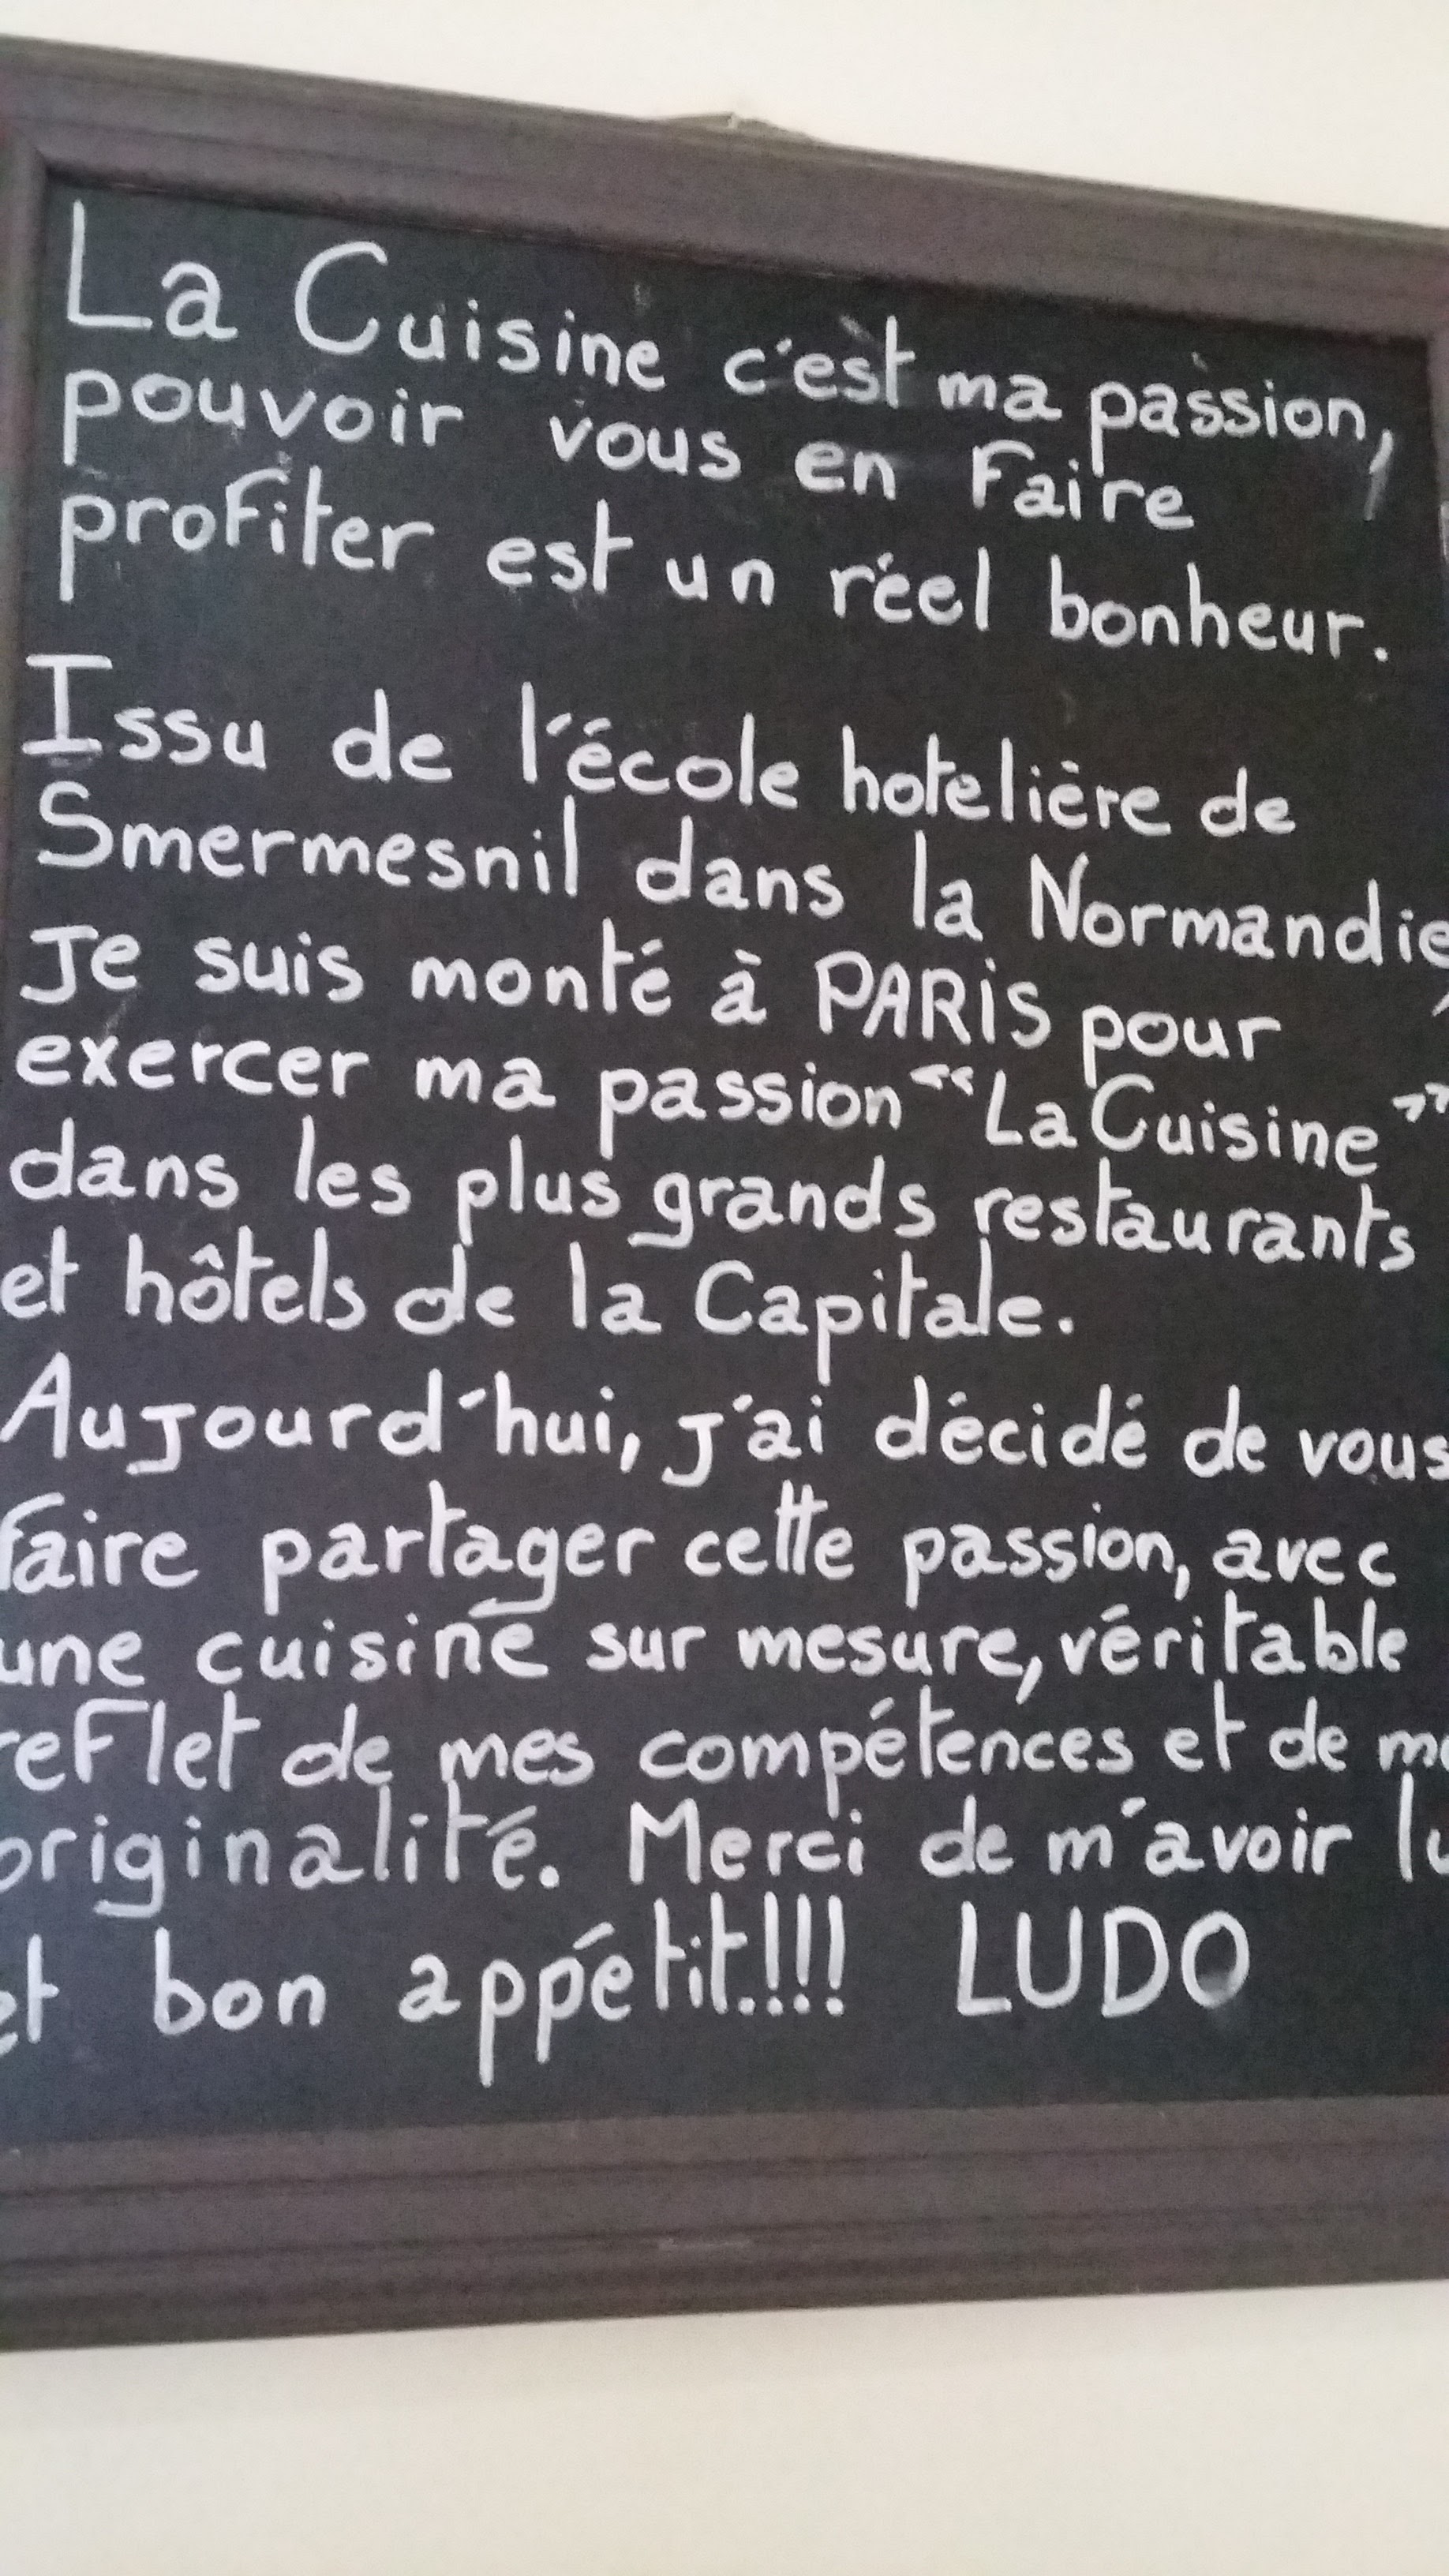 La Cuisine c'est ma passion,
pouvoir vous en Faire
profiter est un réel bonheur.
Issu de l'école hotelière de
Smermesnil dans la Normandie,
Je suis monté à PARIS pour
exercer ma passion "La Cuisine"
dans les plus grands restaurants
et hôtels de la Capitale.
Aujourd'hui, j'ai décidé de vous
faire partager cette passion, avec
une cuisine sur mesure, véritable
reflet de mes compétences et de ma
originalité. Merci de m'avoir lu
et bon appétit!!!! LUDO